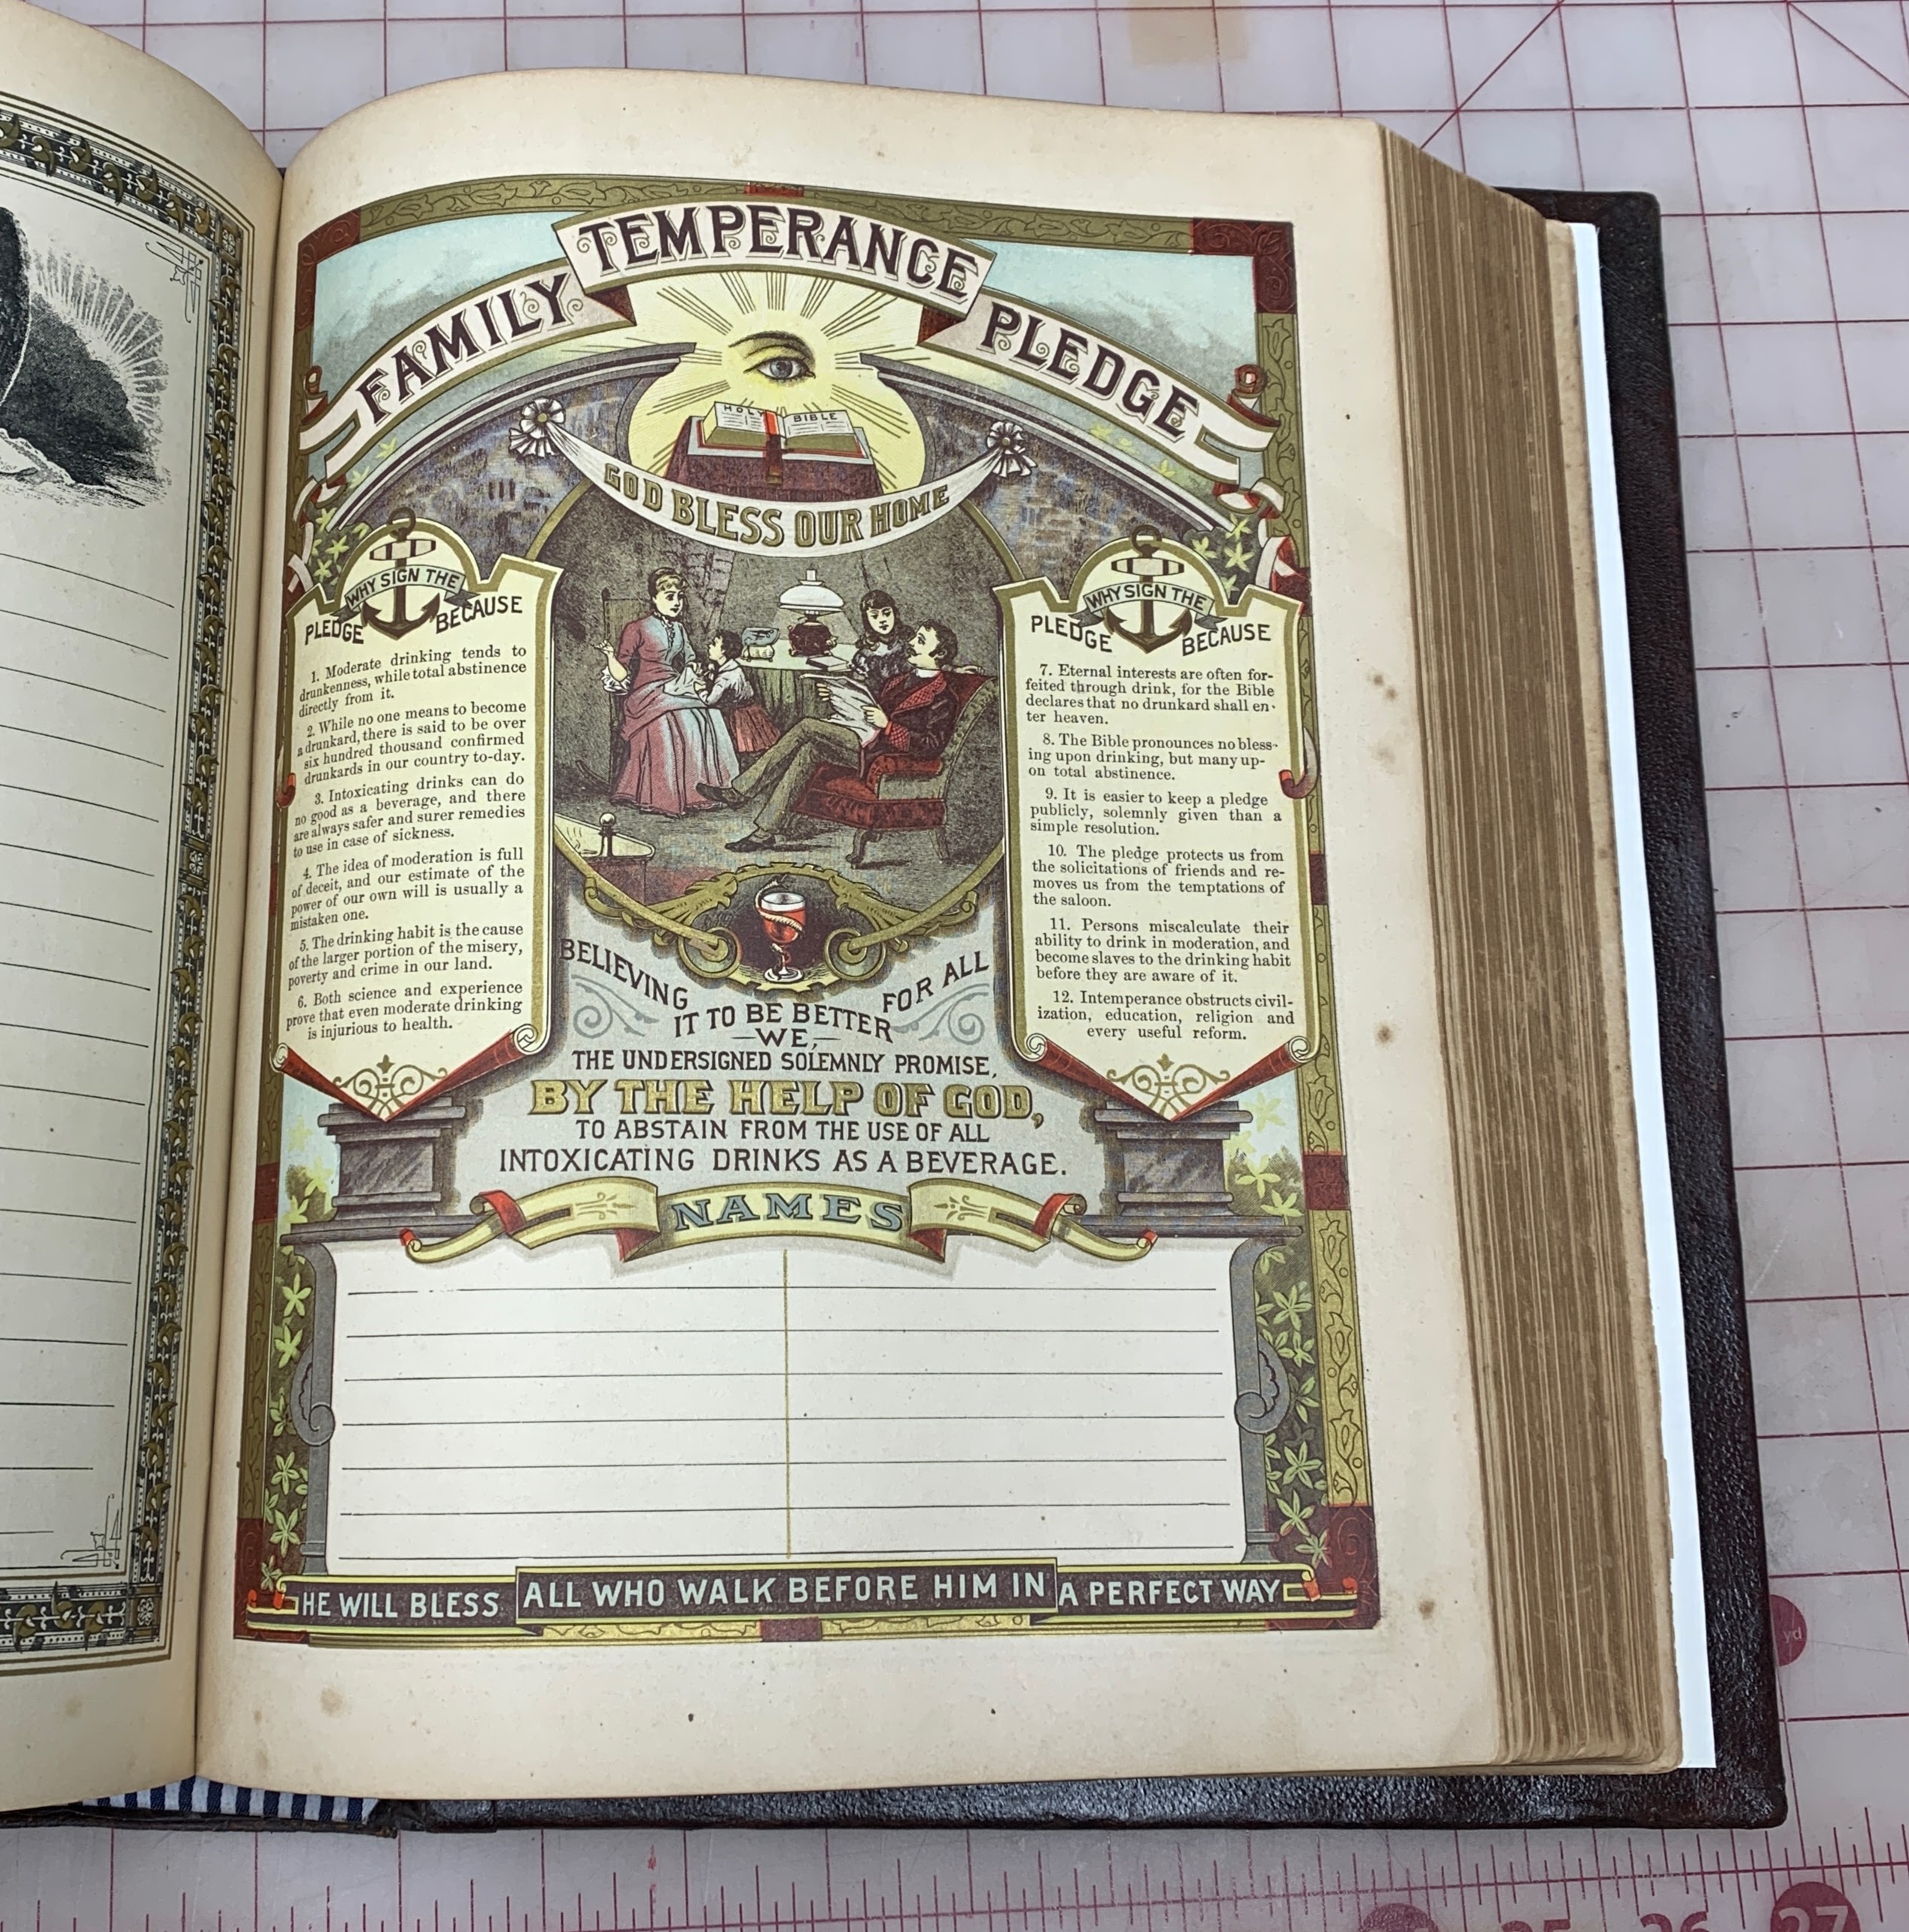 FAMILY TEMPERANCE PLEDGE
HOLY BIBLE
GOD BLESS OUR HOME
WHY SIGN THE
PLEDGE BECAUSE
1. Moderate drinking tends to
drunkenness, while total abstinence
directly from it.
2. While no one means to become
a drunkard, there is said to be over
six hundred thousand confirmed
drunkards in our country to-day.
3. Intoxicating drinks can do
no good as a beverage, and there
are always safer and surer remedies
to use in case of sickness.
4. The idea of moderation is full
of deceit, and our estimate of the
power of our own will is usually a
mistaken one.
5. The drinking habit is the cause
of the larger portion of the misery,
poverty and crime in our land.
6. Both science and experience
prove that even moderate drinking
is injurious to health.
WHY SIGN THE
PLEDGE BECAUSE
7. Eternal interests are often for-
feited through drink, for the Bible
declares that no drunkard shall en-
ter heaven.
8. The Bible pronounces no bless-
ing upon drinking, but many up-
on total abstinence.
9. It is easier to keep a pledge
publicly, solemnly given than a
simple resolution.
10. The pledge protects us from
the solicitations of friends and re-
moves us from the temptations of
the saloon.
11. Persons miscalculate their
ability to drink in moderation, and
become slaves to the drinking habit
before they are aware of it.
12. Intemperance obstructs civil-
ization, education, religion and
every useful reform.
BELIEVING IT TO BE BETTER FOR ALL
WE,
THE UNDERSIGNED SOLEMNLY PROMISE,
BY THE HELP OF GOD,
TO ABSTAIN FROM THE USE OF ALL
INTOXICATING DRINKS AS A BEVERAGE.
NAMES
HE WILL BLESS ALL WHO WALK BEFORE HIM IN A PERFECT WAY
yd
25 26 27